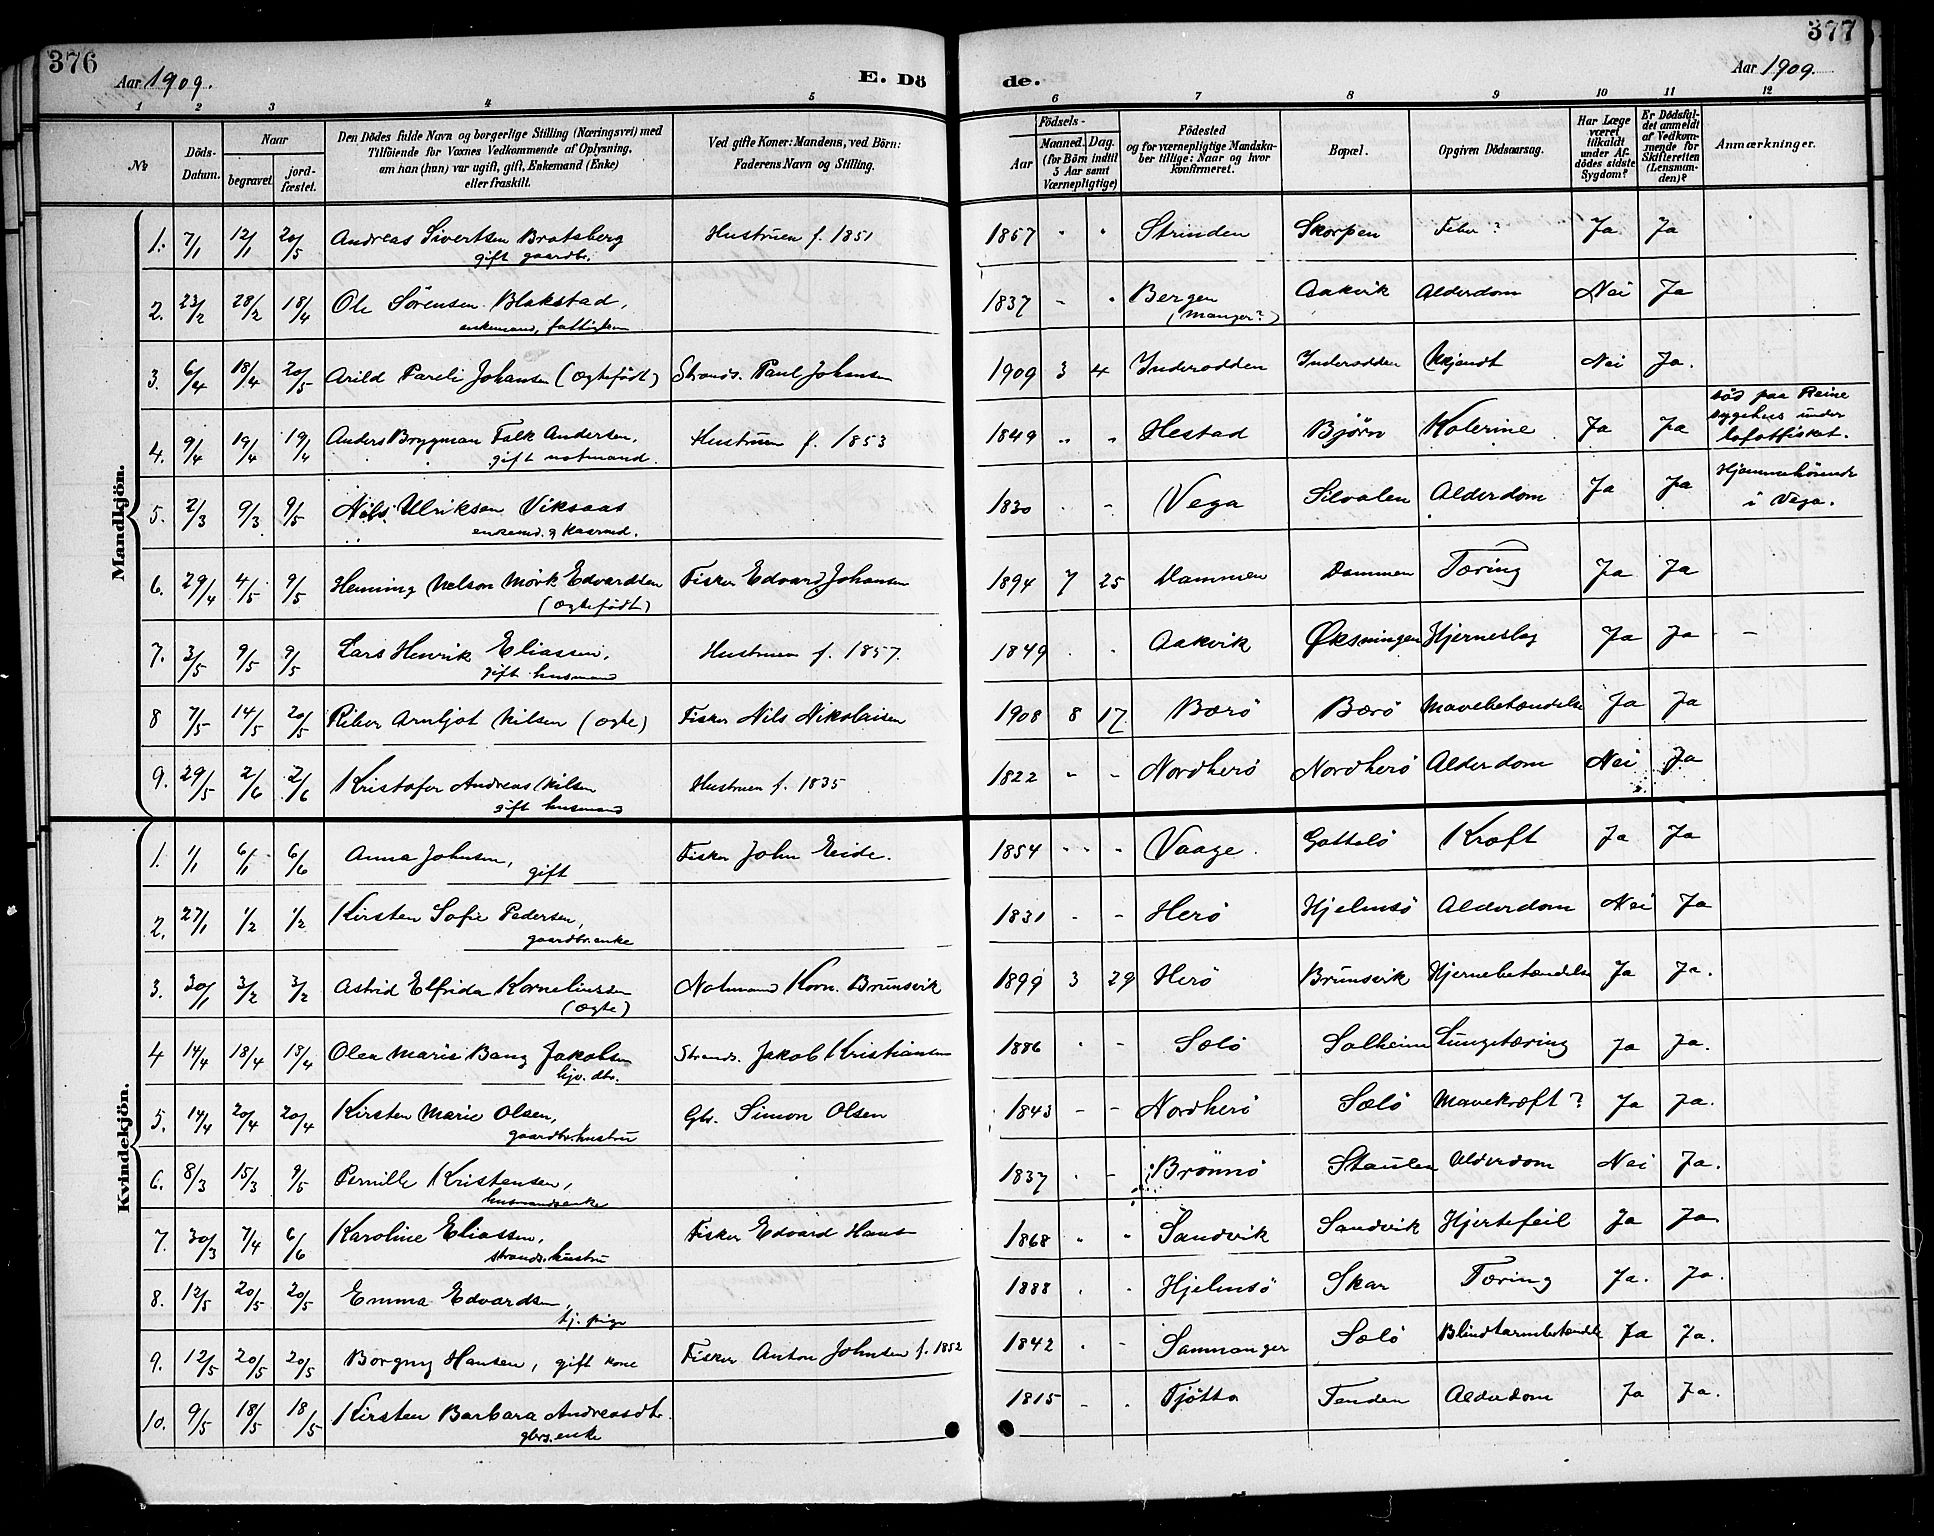 376
Aar 1909.
E. Dö
de.
Aar 1909.
377
1 2 3 4 5 6 7 8 9 10 11 12
№
Döds-Datum.
Naar
begravet.
jordfæstet.
Den Dödes fulde Navn og borgerlige Stilling (Næringsvei) med
Tilföiende for Voxnes Vedkommende af Oplysning,
om han (hun) var ugift, gift, Enkemand (Enke)
eller fraskilt.
Ved gifte Koner: Mandens, ved Börn:
Faderens Navn og Stilling.
Födsels-
Aar
Maaned. Dag.
(for Börn indtil
5 Aar samt
Værnepligtige)
Födested
og for værnepligtige Mandskaber tillige: Naar og hvor
konfirmeret.
Bopæl.
Opgiven Dödsaarsag.
Har Læge
været
tilkaldt
under Afdödes sidste
Sygdom?
Er Dödsfaldet anmeldt
af Vedkommende for
Skifteretten
(Lensmanden)?
Anmærkninger.
Mandkjön.
1. 7/1 12/1 20/5 Andreas Sivertsen Bratsberg Hustruen f. 1851 1867 " " Strinden Skorpen Feber ? Ja Ja
gift gaardbr.
2. 23/2 28/2 18/4 Ole Sörensen Blakstad, 1837 - " Bergen Aakvik Alderdom Nei Ja
enkemand, fattiglem (Manger?)
3. 6/4 18/4 20/5 Arild Pareli Johansen (ægtefödt) Strands. Paul Johansen 1909 3 4 Inderodden Inderodden Ukjendt Nei Ja.
4. 9/4 19/4 19/4 Anders Brygman Falk Andersen, Hustruen f. 1853 1849 " " Hestad Björn Kolerine Ja Ja död paa Reine
sygehus under
lofotfisket.
gift notmand.
5. 2/3 9/3 9/5 Nils Ulriksen Viksaas 1830 . - Vega Silvalen Alderdom Ja Ja Hjemmehörende
i Vega.
enkemd. & kaarmd.
6. 29/4 4/5 9/5 Henning Nelson Mörk Edvardsen Fisker Edvard Johansen 1894 7 25 Dammen Dammen Tæring Ja Ja
(ægtefödt)
7. 3/5 9/5 9/5 Lars Henrik Eliassen, Hustruen f. 1857. 1849 . . Aakvik Øksningen Hjerneslag Ja Ja -
gift husmand
8 7/5 14/5 20/5 Arnljot Nilsen (ægte) Fisker Nils Nikolaisen 1908 8 17 Bærö Bærö Mavebetændelse Ja Ja
9. 29/5 2/6 2/6 Kristofer Andreas Nilsen Hustruen f. 1835 1822 " - Nordherö Nordherö Alderdom Nei Ja
gift husmand
Kvindekjön.
1. 1/1 6/1 6/6 Anna Johnsen, Fisker John Eide. 1854 " " - Vaage. Gottelö Kræft Ja Ja
gift
2. 27/1 1/2 1/2 Kirsten Sofie Pedersen, 1831 - - Herö Hjelmsö Alderdom Nei Ja
gaardbr.enke
3. 30/1 3/2 3/2 Astrid Elfrida Korneliussen Notmand Korn. Brunsvik 1899 3 29 Herö Brunsvik Hjernebetændelse Ja Ja.
(ægte)
4 14/4 18/4 18/4 Olea Marie Bang Jakobsen Strands. Jakob Kristiansen 1886 " - Sælö Solheim Lungetæring Ja Ja.
hjv. dtr.
5. 14/4 20/4 20/4 Kirsten Marie Olsen, Gbr. Simon Olsen 1843 - - Nordherö Sælö Mavekræft? Ja Ja.
gaardbr.hustru
6. 8/3 15/3 9/5 Pernille Kristensen, 1837 . - Brönnö Staulen Alderdom Nei Ja.
husmandsenke
7. 30/3 7/4 6/6 Karoline Eliassen, Fisker Edvard Hans 1868 " " Sandvik Sandvik Hjertefeil Ja Ja
strands.hustru
8. 12/5 20/5 20/5 Emma Edvardsen, 1888 . . Hjelmsö Skar Tæring Ja. Ja.
tj. pige
9. 12/5 20/5 20/5 Borgny Hansen, gift kone Fisker Anton Johnsen f. 1852 1842 . - Sammanger Sælö Blindtarmbetændelse Ja Ja.
10. 9/5 18/5 18/5 Kirsten Barbara Andreasdtr. 1815 - . Tjötta Tenden Alderdom Ja Ja.
gbrs. enke